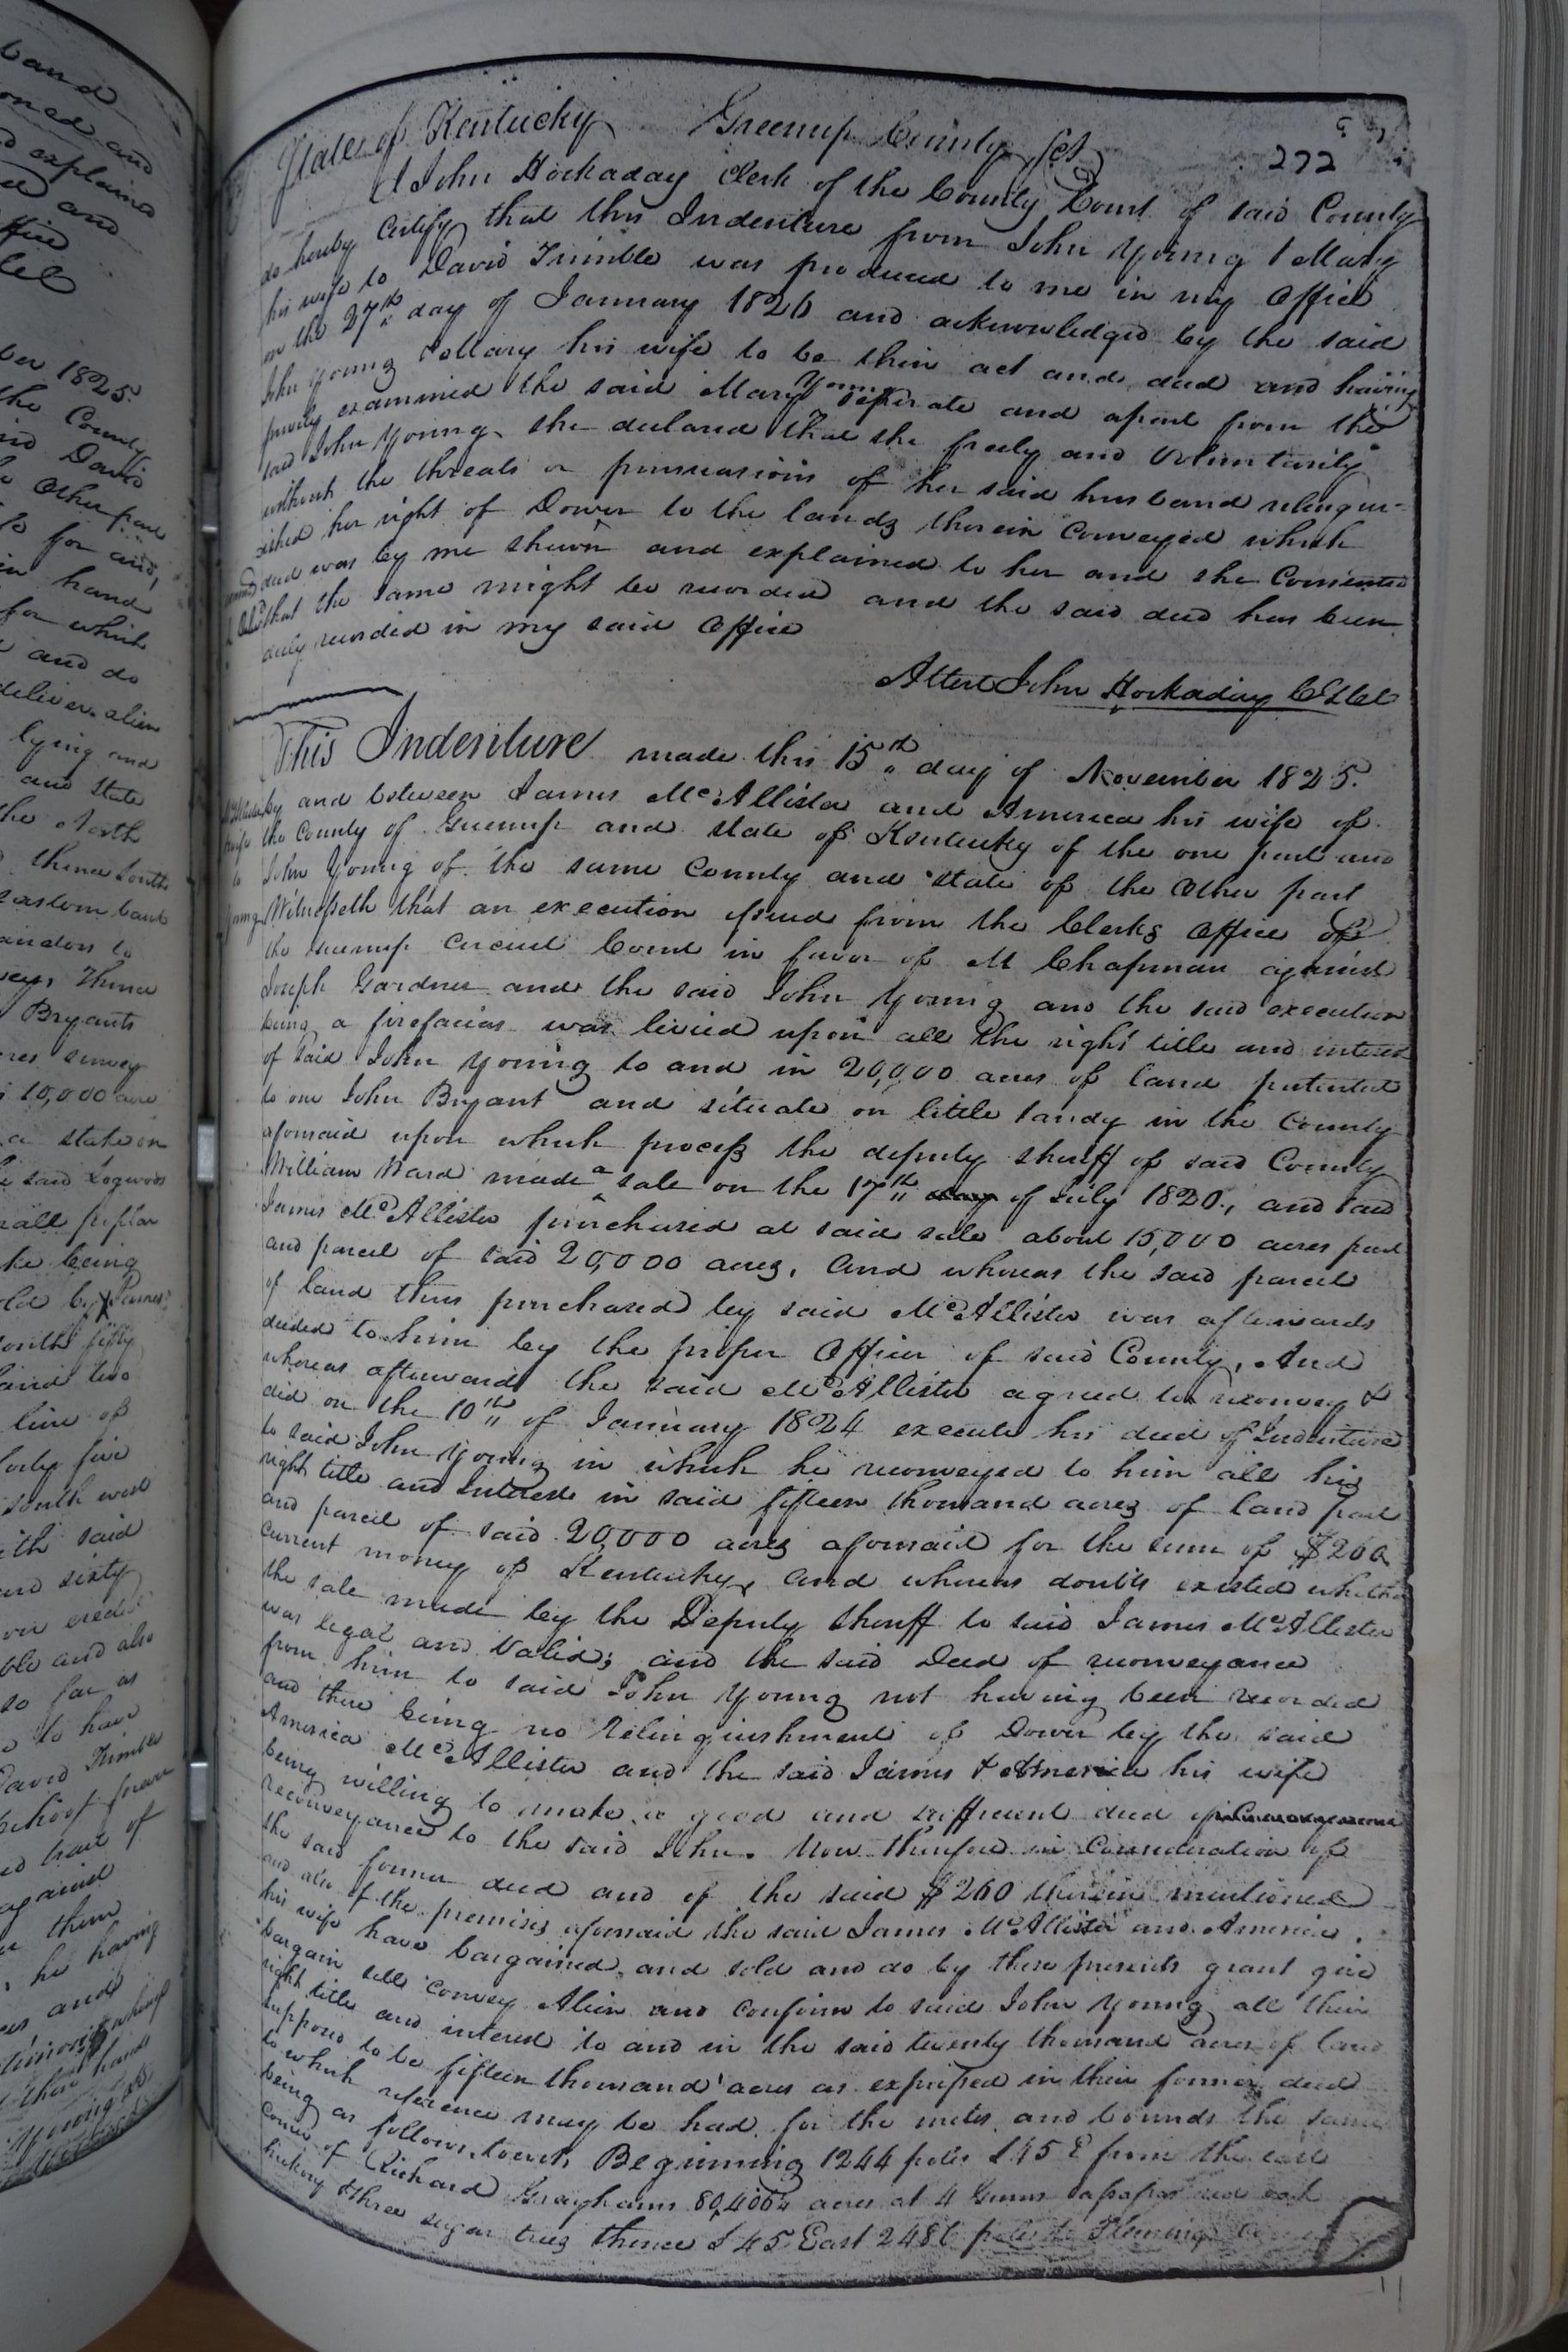 band
oned and
explained
and
ffice
ber 1825.
the County
said David
other part
to for and
in hand
for which
and do
deliver alien
lying and
and State
the North
thence South
eastern bank
Thence
Bryants
acres survey
10,000 acre
a stake on
said Logwoods
small poplar
being
James
South fifty
and two
line of
forty five
South west
with said
and sixty
and also
so far as
to have
David Trimble
tract of
against
them
he having
and
their hands
Young
272
State of Kentucky Greenup County Sct
I John Hockaday Clerk of the County Court of said County
do hereby certify that this Indenture from John Young & Mary
his wife to David Trimble was produced to me in my office
on the 27th day of January 1826 and acknowledged by the said
John Young & Mary his wife to be their act and deed and having
privily examined the said Mary Young seperate and apart from the
said John Young, she declared that she freely and voluntarily
without the threats or pursuasions of her said husband relinqu-
ished her right of Dower to the lands therein conveyed which
deed was by me shewn and explained to her and she consented
that the same might be recorded and the said deed has been
duly recorded in my said office
Attest John Hockaday
This Indenture made this 15th day of November 1825.
by and between James McAllister and America his wife of
the County of Greenup and state of Kentucky of the one part and
John Young of the same County and state of the other part
Witnesseth that an execution issued from the Clerks office of
the Greenup Circuit Court in favor of M Chapman against
Joseph Gardner and the said John Young and the said execution
being a firefacias was levied upon all the right title and interest
of said John Young to and in 20,000 acres of land patented
to one John Bryant and situate on little Sandy in the County
aforesaid upon which process the deputy sheriff of said County
William Ward made a sale on the 17th day of July 1820, and said
James McAllister purchased at said sale about 15,000 acres part
and parcel of said 20,000 acres. And whereas the said parcel
of land thus purchased by said McAllister was afterwards
deeded to him by the proper officer of said County, And
whereas afterwards the said McAllister agreed to reconvey &
did on the 10th of January 1824 execute his deed of Indenture
to said John Young in which he reconveyed to him all his
right title and Interest in said fifteen thousand acres of land part
and parcel of said 20,000 acres aforesaid for the sum of $260
current money of Kentucky, and whereas doubts existed whether
the sale made by the Deputy Sheriff to said James McAllister
was legal and valid; and the said Deed of reconveyance
from him to said John Young not having been recorded
and there being no relinquishment of Dower by the said
America McAllister and the said James & America his wife
being willing to make a good and sufficient deed of
reconveyance to the said John. Now therefore in consideration of
the said former deed and of the said $260 therein mentioned
and also of the premises aforesaid the said James McAllister and America
his wife have bargained and sold and do by these presents grant give
bargain sell convey Alien and confirm to said John Young all their
right title and interest to and in the said twenty thousand acres of land
supposed to be fifteen thousand acres as expressed in their former deed
to which reference may be had for the metes and bounds the same
being as follows towit, Beginning 1244 poles S45 E from the east
corner of Richard Grayhams acres at 4 Gums sassafras red oak
hickory & three sugar trees thence S 45 East 2486 poles to Flemings